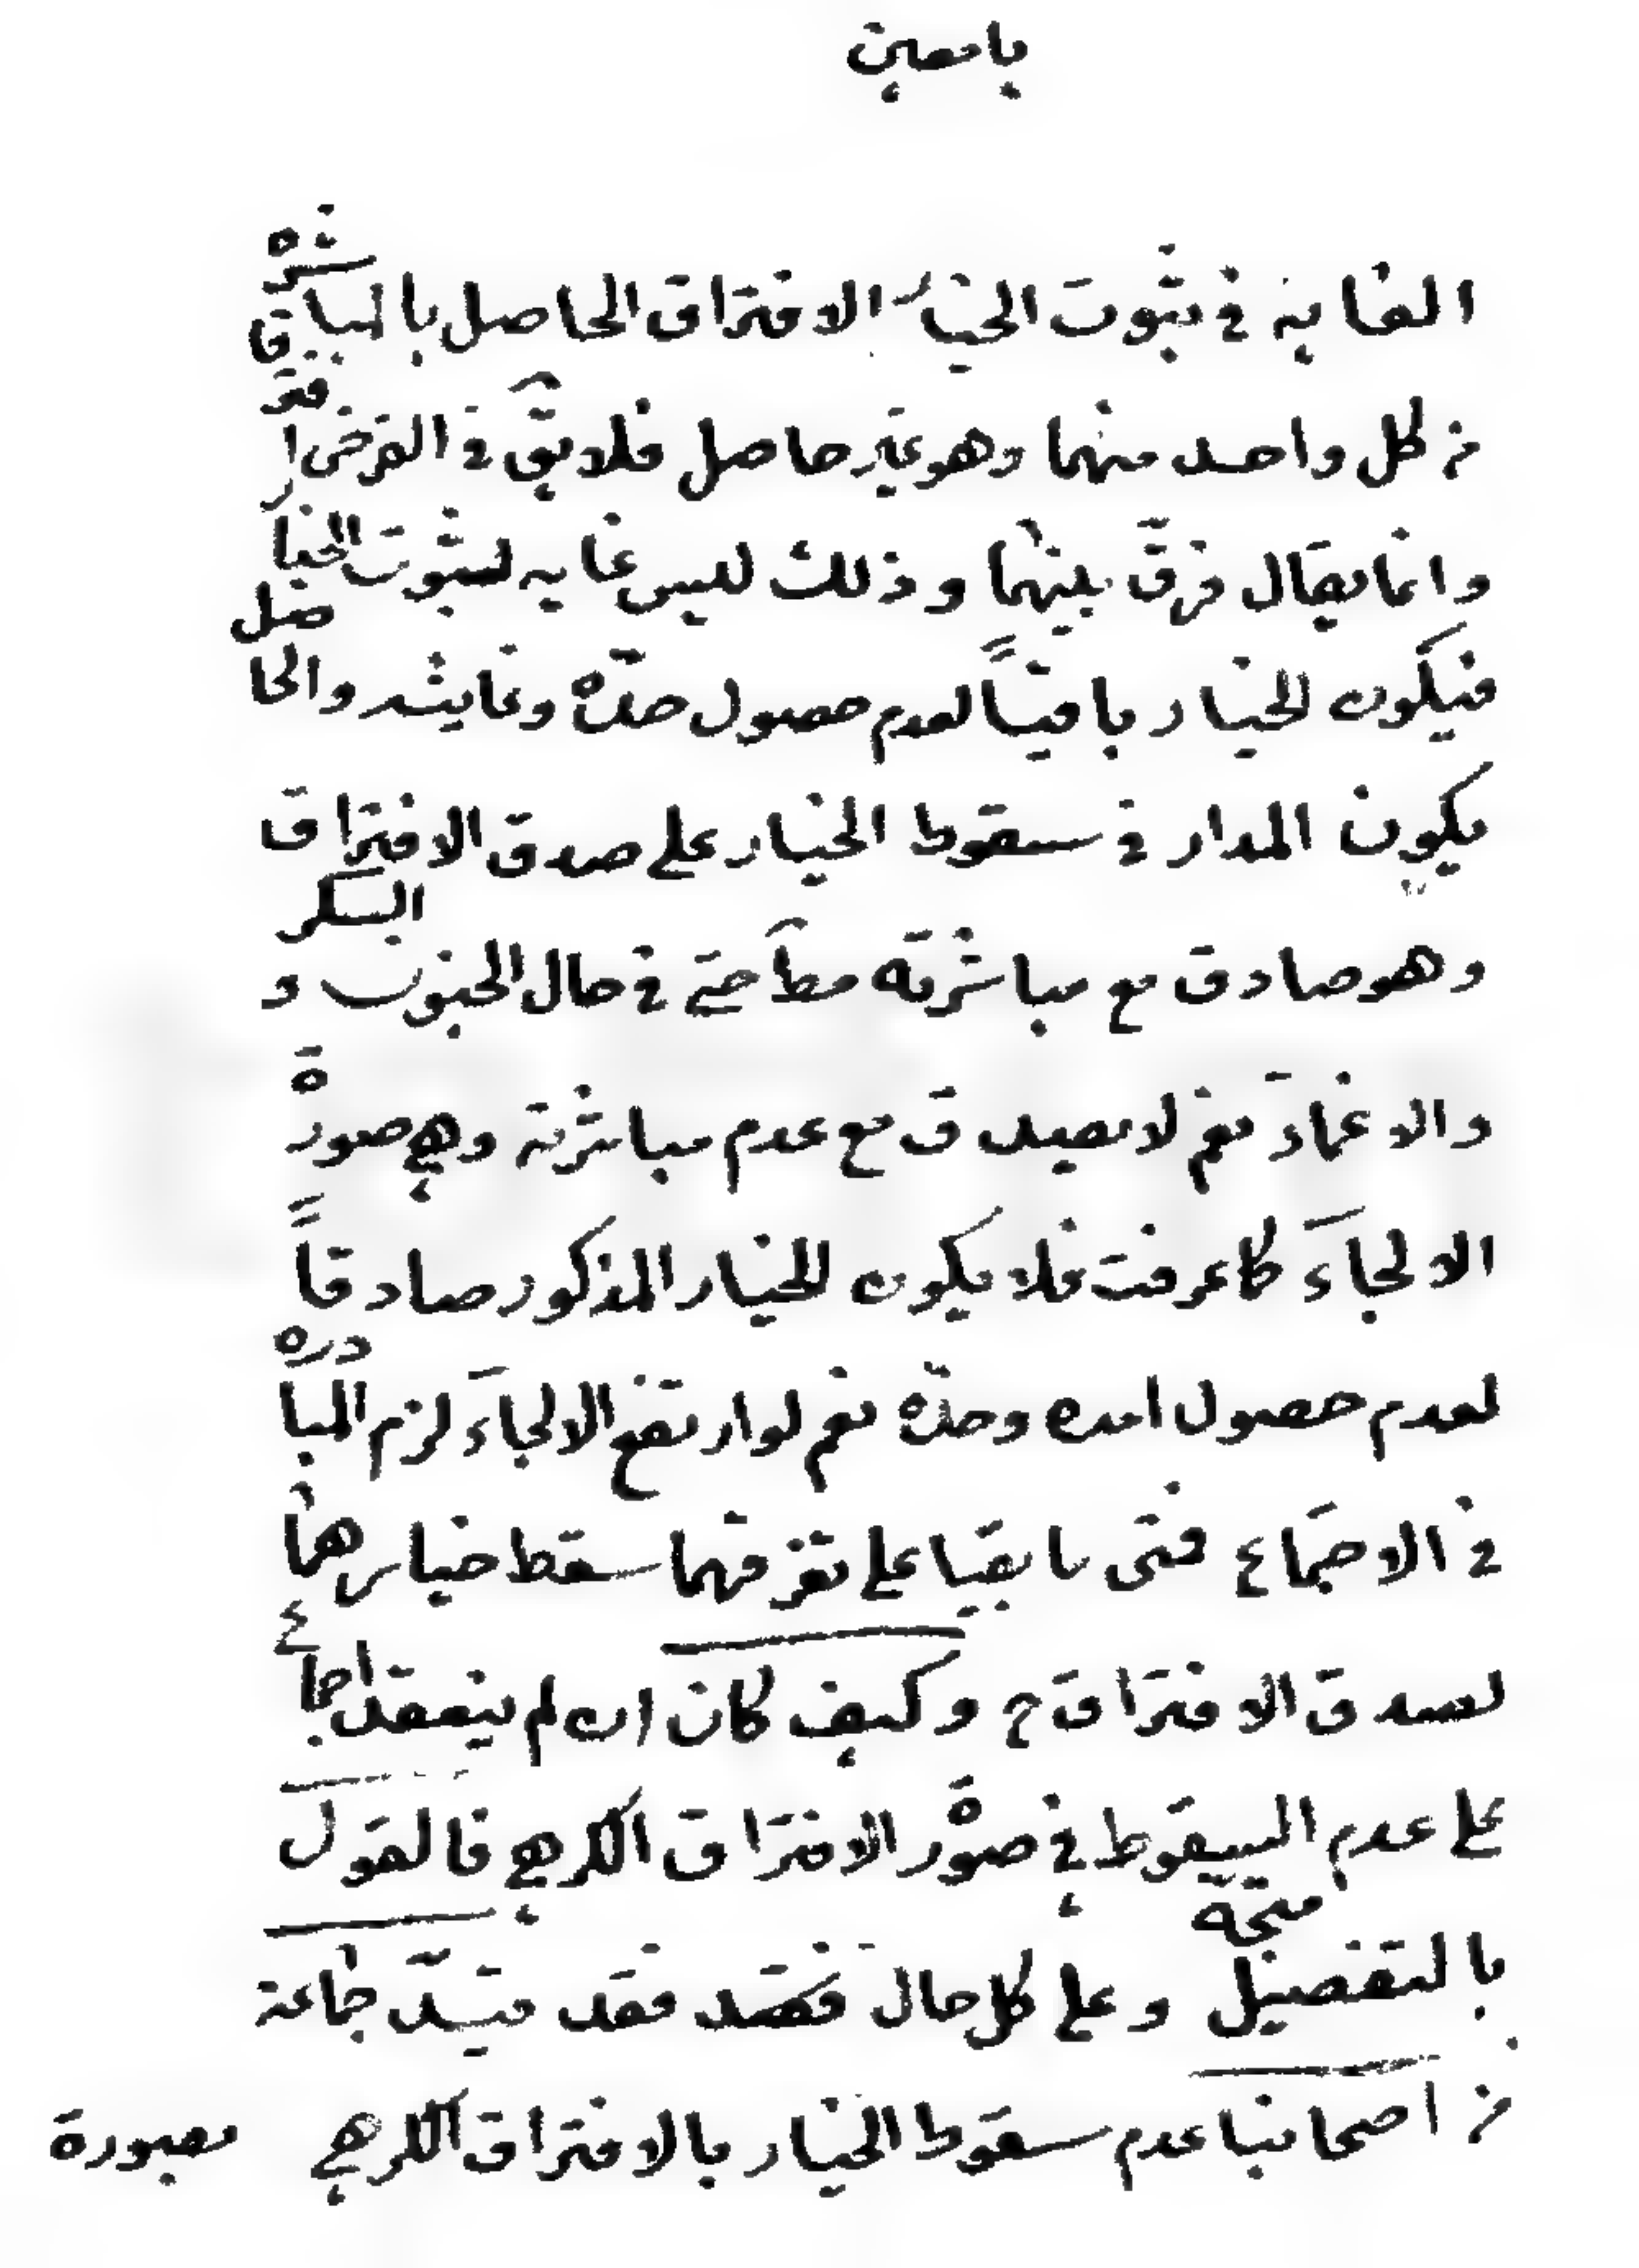 يا معين
الغاية في ثبوت الخيار الافتراق الحاصل بالمباشرة
من كل واحد منهما وهو غير حاصل فلا يقَ في الفرض افترقا
وانما يقال فرق بينهما وذلك ليس غاية لثبوت الخيار
فيكون الخيار باقياً لعدم حصول حدّه وغايته والحاصل
يكون المدار في سقوط الخيار على صدق الافتراق
وهو صادق مع مباشرته مطآ حتى في حال الجنون و السكر
والاغماء نعم لا يصدق مع عدم مباشرته وهي صورة
الالجاء كما عرفت فلا يكون للخيار المذكور صادقاً
لعدم حصول امده وحدّه نعم لو ارتفع الالجاء لزم المبادره
في الاجتماع فمتى ما بقيا على تفرقهما سقط خيارهما
لصدق الافتراق ح وكيف كان ان لم ينعقد اجماع
على عدم السقوط في صورة الافتراق الكرهي فالقول
بالتفصيل متجه وعلى كل حال فقد قيّد جماعة
من اصحابنا عدم سقوط الخيار بالافتراق الكرهي
بصورة